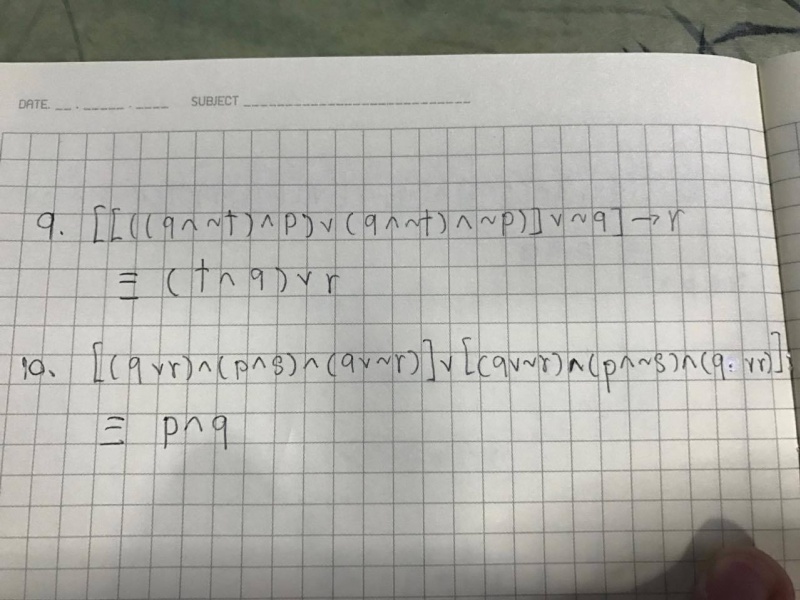 DATE. __ . _____ . ____ SUBJECT __________________________
9. [[((q∧~t)∧p)∨(q∧~t)∧~p)]∨~q]→r
≡ (t∧q)∨r
10. [(q∨r)∧(p∧s)∧(q∨~r)]∨[(q∨~r)∧(p∧~s)∧(q∨r)]
≡ p∧q